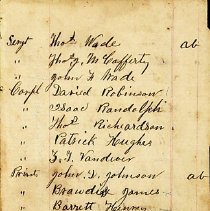 Sergt Thos Wade ab
" Thos J. McCafferty
" John F Wade
Corpl David Robinson
" Isaac Randolph
" Thos Richeardson
" Patrick Hughes
" Z. T. Vandivir
Privts John D. Johnson ab
" Brandish James
" Barrett Henry